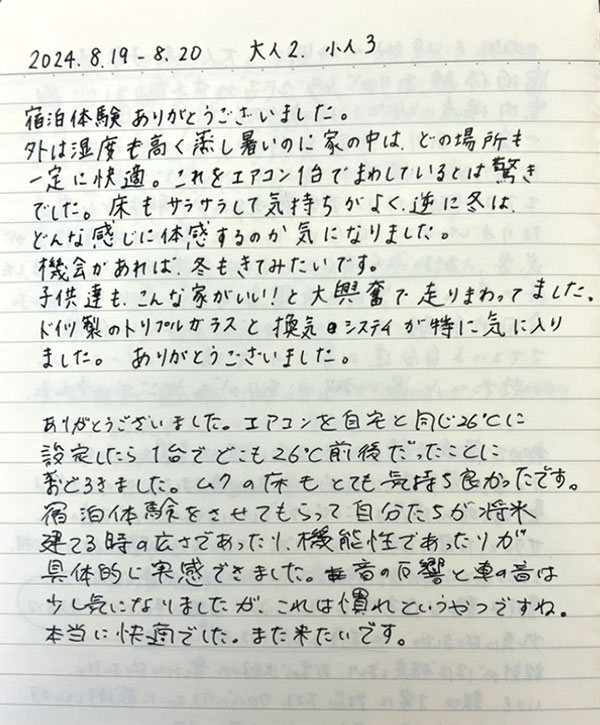 2024.8.19-8.20 大人2. 小人3
宿泊体験ありがとうございました。
外は湿度も高く蒸し暑いのに家の中は、どの場所も
一定に快適。これをエアコン1台でまわしているとは驚き
でした。床もサラサラして気持ちがよく、逆に冬は、
どんな感じに体感するのか気になりました。
機会があれば、冬もきてみたいです。
子供達も、こんな家がいい!と大興奮で走りまわってました。
ドイツ製のトリプルガラスと換気システイが特に気に入り
ました。 ありがとうございました。
ありがとうございました。エアコンを自宅と同じ26℃に
設定したら1台でどこも26℃前後だったことに
おどろきました。ムクの床もとても気持ち良かったです。
宿泊体験をさせてもらって自分たちが将来
建てる時の広さであったり、機能性であったりが
具体的に実感できました。音の反響と車の音は
少し気になりましたが、これは慣れというやつですね。
本当に快適でした。また来たいです。